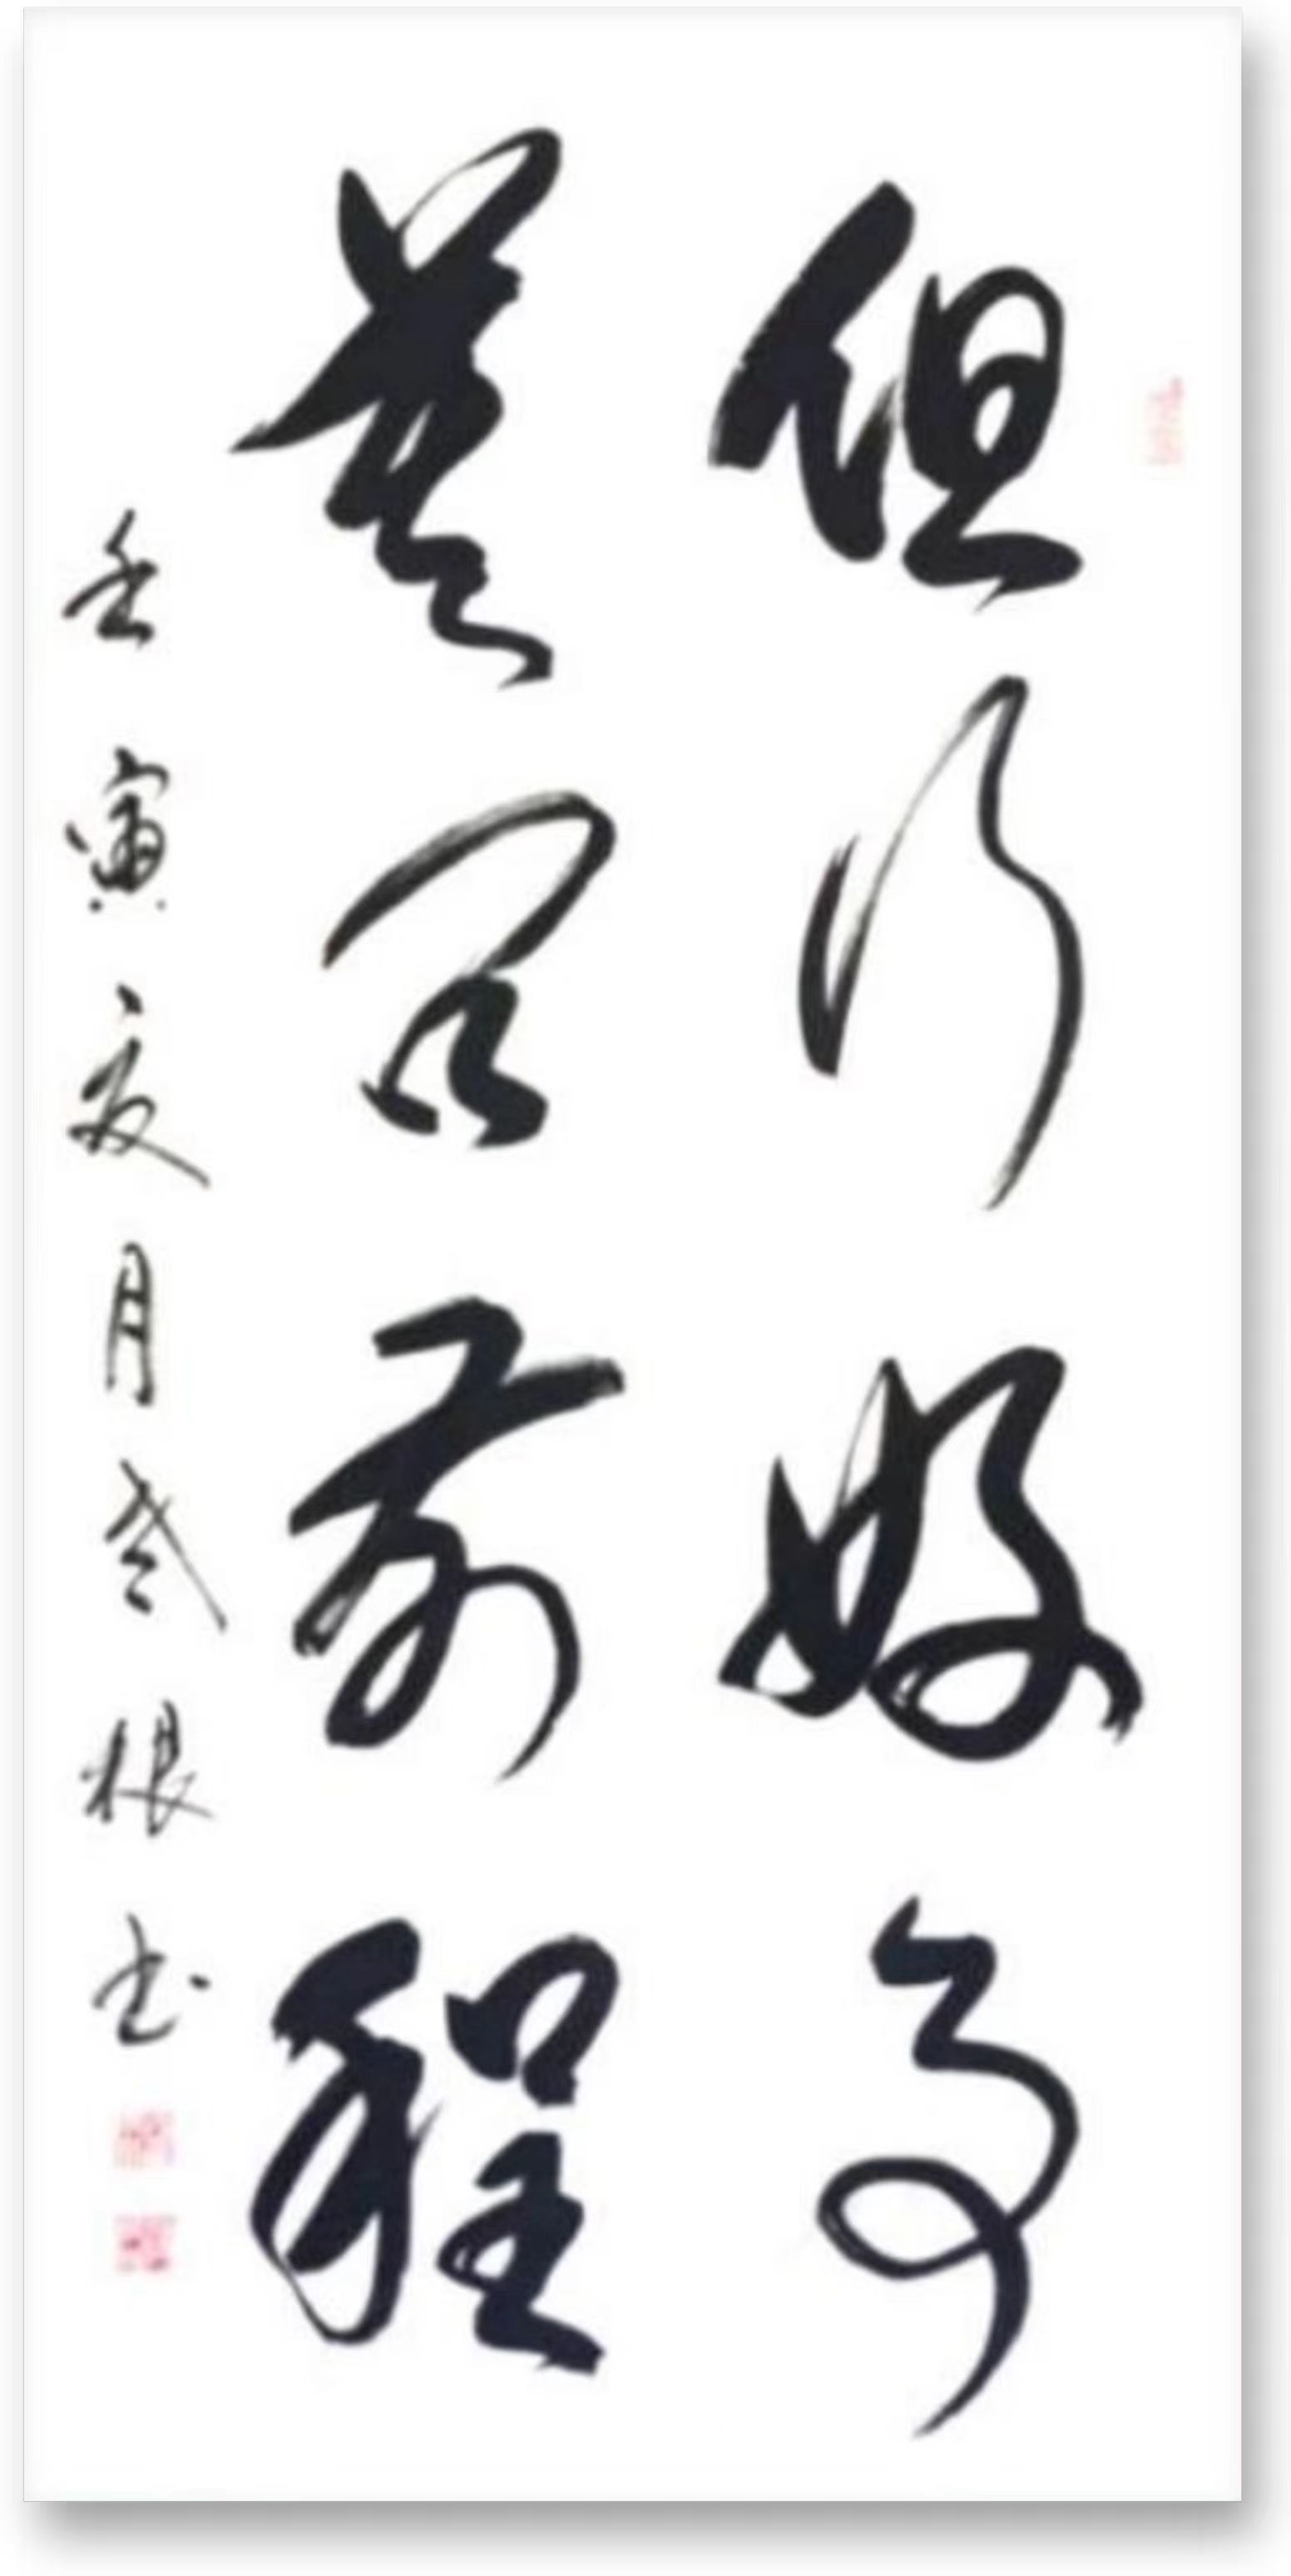 但行好事
莫问前程
壬寅夏月 根书